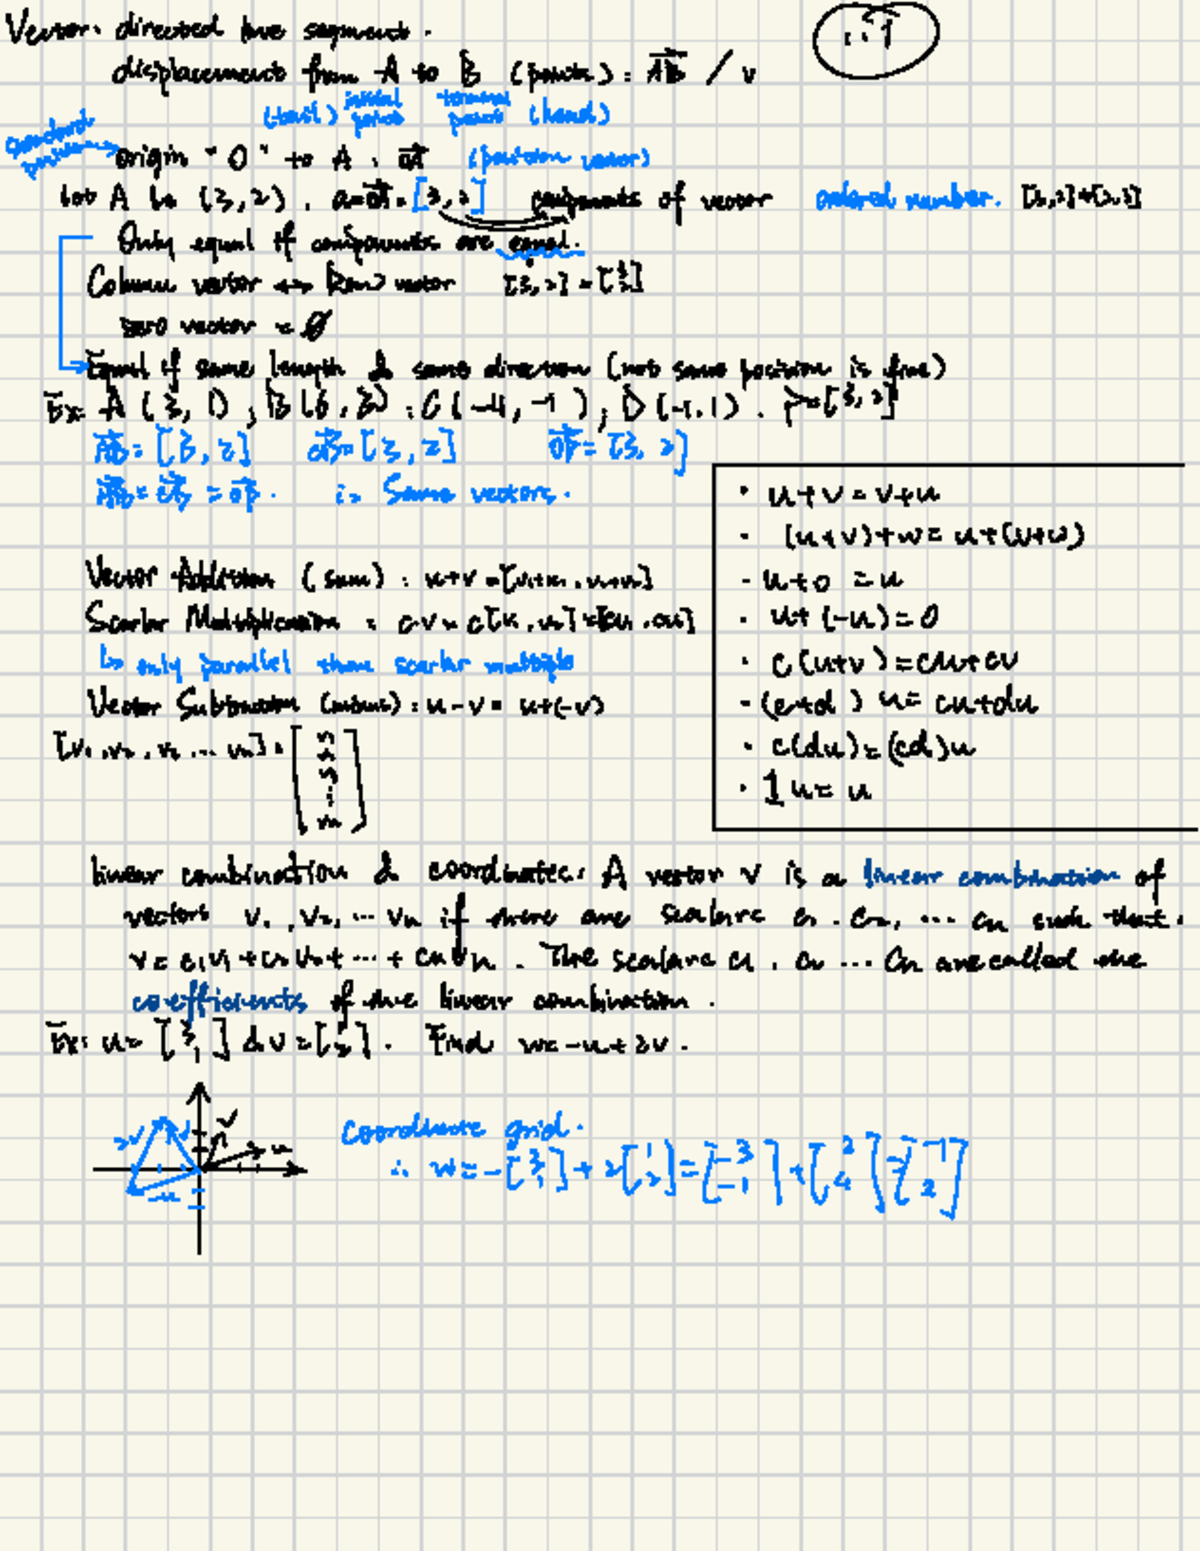 Vector: directed line segment.
displacement from A to B (points): AB / v
(tail) initial point terminal point (head)
standard position
origin "O" to A : OA (position vector)
let A be (3,2). a=OA=[3,2] components of vector ordered number. [3,2]≠[2,3]
Only equal if components are equal.
Column vector ↔ Row vector [3,2] = [3 2]
zero vector = 0
Equal if same length & same direction (not same position is fine)
Ex: A(3,1), B(6,3), C(-4,-1), D(-1,1). P=[3,2]
AB=[3,2] CD=[3,2] OP=[3,2]
AB=CD=OP. ∴ Same vectors.
Vector Addition (sum): u+v=[
Scarlar Multiplication: cv = c[
↳ only parallel then scarlar multiple
Vector Subtraction (minus): u-v = u+(-v)
[v₁, v₂, v₃ ... vn] =
· u+v=v+u
· (u+v)+w=u+(v+w)
- u+0=u
· u+(-u)=0
· c(u+v)=cu+cv
- (c+d)u=cu+du
· c(du)=(cd)u
· 1u=u
linear combination & coordinates: A vector v is a linear combination of
vectors v₁, v₂, ... vn if there are scalars c₁, c₂, ... cn such that
v=c₁v₁+c₂v₂+...+cnvn. The scalars c₁, c₂ ... cn are called the
coefficients of the linear combination.
Ex: u=[3 1] & v=[1 2]. Find w=-u+2v.
2v v u -u
coordinate grid.
∴ w=-[3 1]+2[1 2]=[-3 -1]+[2 4]=[-1 2]